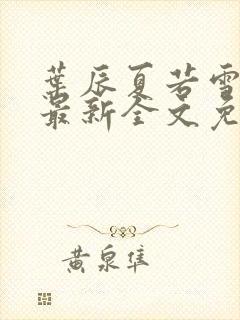 叶辰夏若雪
最新全文免
黄泉隼